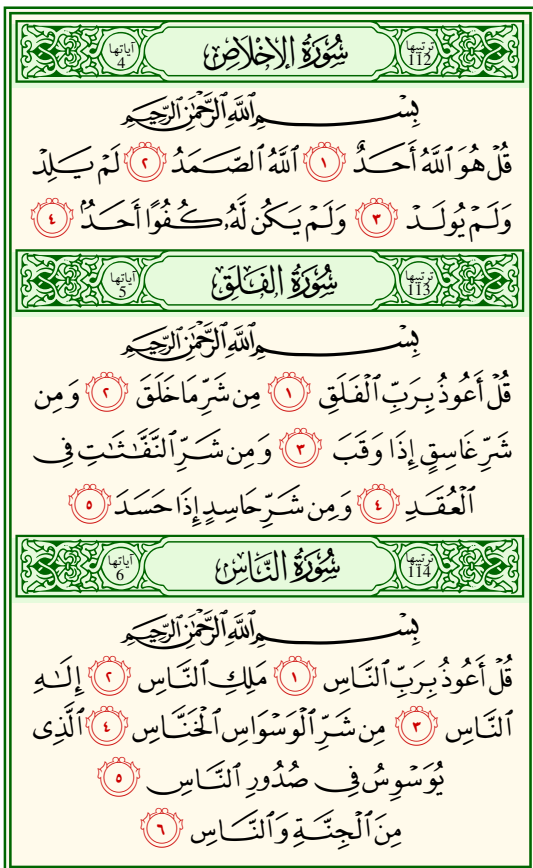 ترتيبها 112 سُورَةُ الإِخْلَاصِ آياتها 4
بِسْمِ ٱللَّهِ ٱلرَّحْمَٰنِ ٱلرَّحِيمِ
قُلْ هُوَ ٱللَّهُ أَحَدٌ ١ ٱللَّهُ ٱلصَّمَدُ ٢ لَمْ يَلِدْ
وَلَمْ يُولَدْ ٣ وَلَمْ يَكُن لَّهُۥ كُفُوًا أَحَدٌۢ ٤
ترتيبها 113 سُورَةُ الفَلَقِ آياتها 5
بِسْمِ ٱللَّهِ ٱلرَّحْمَٰنِ ٱلرَّحِيمِ
قُلْ أَعُوذُ بِرَبِّ ٱلْفَلَقِ ١ مِن شَرِّ مَا خَلَقَ ٢ وَمِن
شَرِّ غَاسِقٍ إِذَا وَقَبَ ٣ وَمِن شَرِّ ٱلنَّفَّٰثَٰتِ فِى
ٱلْعُقَدِ ٤ وَمِن شَرِّ حَاسِدٍ إِذَا حَسَدَ ٥
ترتيبها 114 سُورَةُ النَّاسِ آياتها 6
بِسْمِ ٱللَّهِ ٱلرَّحْمَٰنِ ٱلرَّحِيمِ
قُلْ أَعُوذُ بِرَبِّ ٱلنَّاسِ ١ مَلِكِ ٱلنَّاسِ ٢ إِلَٰهِ
ٱلنَّاسِ ٣ مِن شَرِّ ٱلْوَسْوَاسِ ٱلْخَنَّاسِ ٤ ٱلَّذِى
يُوَسْوِسُ فِى صُدُورِ ٱلنَّاسِ ٥
مِنَ ٱلْجِنَّةِ وَٱلنَّاسِ ٦